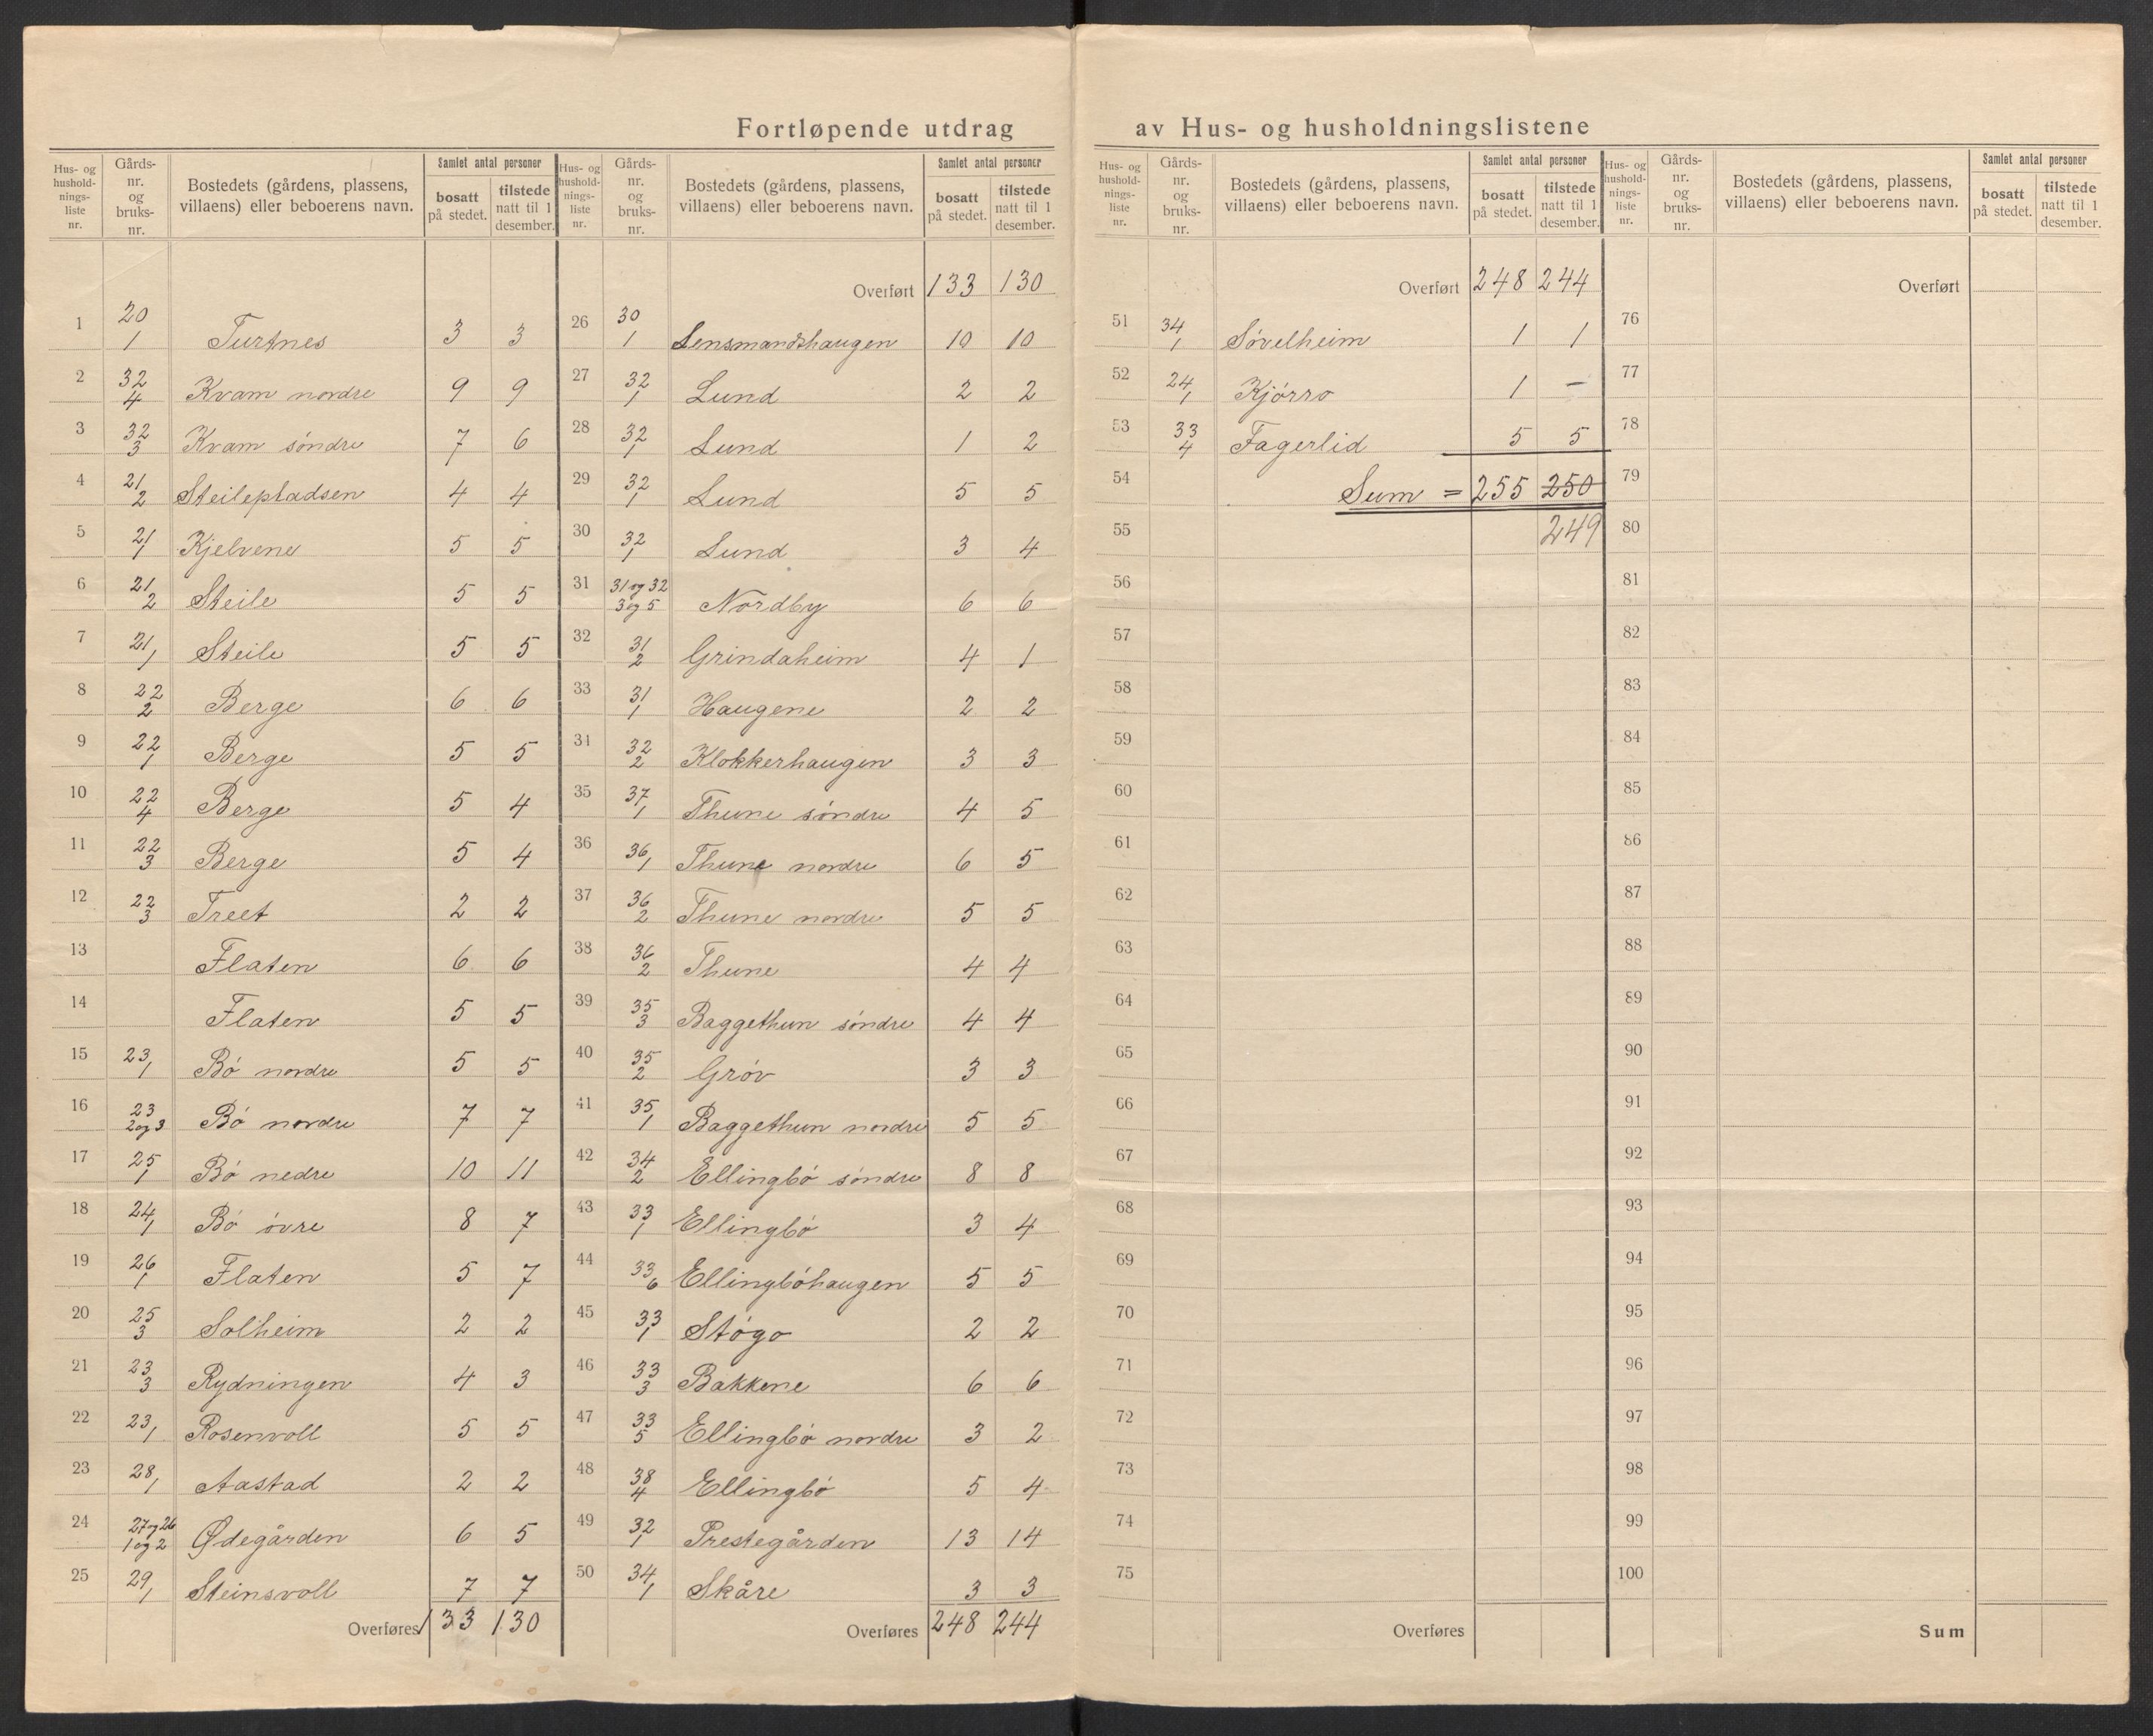 Fortløpende utdrag av Hus- og husholdningslistene
Hus- og hushold-nings-liste nr. Gårds-nr. og bruks-nr. Bostedets (gårdens, plassens, villaens) eller beboerens navn. Samlet antal personer bosatt på stedet. tilstede natt til 1 desember.
1 20/1 Turtnes 3 3
2 32/4 Kvam nordre 9 9
3 32/3 Kvam søndre 7 6
4 21/2 Steilepladsen 4 4
5 21/1 Kjelvene 5 5
6 21/2 Steile 5 5
7 21/1 Steile 5 5
8 22/2 Berge 6 6
9 22/1 Berge 5 5
10 22/4 Berge 5 4
11 22/3 Berge 5 4
12 22/3 Treet 2 2
13 Flaten 6 6
14 Flaten 5 5
15 23/1 Bö nordre 5 5
16 23/2og3 Bö nordre 7 7
17 25/1 Bö nedre 10 11
18 24/1 Bö övre 8 7
19 26/1 Flaten 5 7
20 25/3 Solheim 2 2
21 23/3 Rydningen 4 3
22 23/1 Rosenvoll 5 5
23 28/1 Aastad 2 2
24 27og26/1og2 Ødegården 6 5
25 29/1 Steinsvoll 7 7
Overføres 133 130
Hus- og hushold-nings-liste nr. Gårds-nr. og bruks-nr. Bostedets (gårdens, plassens, villaens) eller beboerens navn. Samlet antal personer bosatt på stedet. tilstede natt til 1 desember.
Overført 133 130
26 30/1 Lensmandshaugen 10 10
27 32/1 Lund 2 2
28 32/1 Lund 1 2
29 32/1 Lund 5 5
30 32/1 Lund 3 4
31 31og32/3og5 Nordby 6 6
32 31/2 Grindaheim 4 1
33 31/1 Haugene 2 2
31 32/2 Klokkerhaugen 3 3
35 37/1 Thune söndre 4 5
36 36/1 Thune nordre 6 5
37 36/2 Thune nordre 5 5
38 36/2 Thune 4 4
39 35/3 Baggethun söndre 4 4
40 35/2 Gröv 3 3
41 35/1 Baggethun nordre 5 5
42 34/2 Ellingbö söndre 8 8
43 33/1 Ellingbö 3 4
44 33/6 Ellingböhaugen 5 5
45 33/1 Stögo 2 2
46 33/3 Bakkene 6 6
47 33/5 Ellingbö nordre 3 2
48 38/4 Ellingbö 5 4
49 32/1 Prestegården 13 14
50 34/1 Skåre 3 3
Overføres 248 244
Hus- og hushold-nings-liste nr. Gårds-nr. og bruks-nr. Bostedets (gårdens, plassens, villaens) eller beboerens navn. Samlet antal personer bosatt på stedet. tilstede natt til 1 desember.
Overført 248 244
51 34/1 Sövelheim 1 1
52 24/1 Kjörro 1 –
53 33/4 Fagerlid 5 5
54 Sum = 255 250
55 249
56
57
58
59
60
61
62
63
64
65
66
67
68
69
70
71
72
73
74
75
Overføres
Hus- og hushold-nings-liste nr. Gårds-nr. og bruks-nr. Bostedets (gårdens, plassens, villaens) eller beboerens navn. Samlet antal personer bosatt på stedet. tilstede natt til 1 desember.
Overført
76
77
78
79
80
81
82
83
84
85
86
87
88
89
90
91
92
93
94
95
96
97
98
99
100
Sum